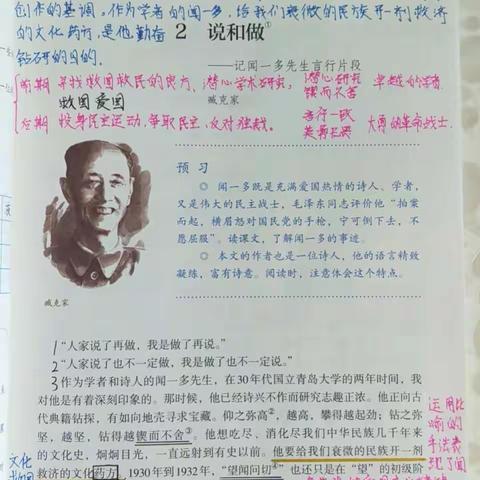 创作的基调。作为学者的闻一多,给我们衰微的民族开一剂救济
的文化药方,是他勤奋
钻研的目的。
2 说和做①
——记闻一多先生言行片段
前期 寻找救国救民的良方,潜心学术研究, 潜心研究 卓越的学者
锲而不舍
救国 爱国
臧克家
后期 投身民主运动,争取民主,反对独裁。 言行一致 大勇的革命战士.
英勇无畏
预 习
◎ 闻一多既是充满爱国热情的诗人、学者,
又是伟大的民主战士,毛泽东同志评价他“拍案
而起,横眉怒对国民党的手枪,宁可倒下去,不
愿屈服”。读课文,了解闻一多的事迹。
◎ 本文的作者也是一位诗人,他的语言精致
凝练,富有诗意。阅读时,注意体会这个特点。
臧克家
1“人家说了再做,我是做了再说。”
2“人家说了也不一定做,我是做了也不一定说。”
3作为学者和诗人的闻一多先生,在30年代国立青岛大学的两年时间,我
对他是有着深刻印象的。那时候,他已经诗兴不作而研究志趣正浓。他正向古
代典籍钻探,有如向地壳寻求宝藏。仰之弥高②,越高,攀得越起劲;钻之弥
坚,越坚,钻得越锲而不舍③。他想吃尽、消化尽我们中华民族几千年来
的文化史,炯炯目光,一直远射到有史以前。他要给我们衰微的民族开一剂
救济的文化药方。1930年到1932年,“望闻问切④”也还只是在“望”的初级阶
运用比
喻的
手法表
现了闻
文化